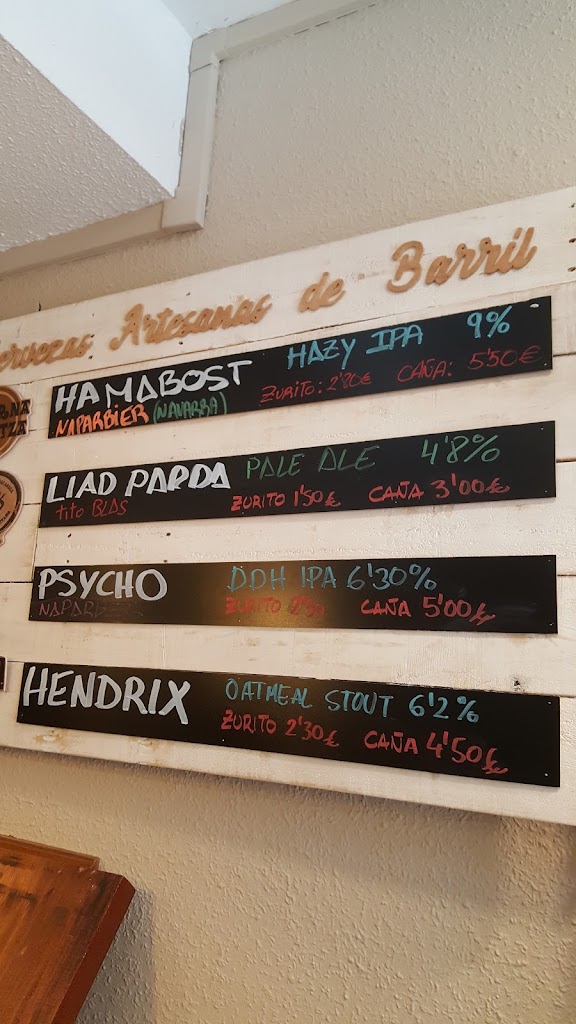 Cervezas Artesanas de Barril
HAMABOST HAZY IPA 9%
NAPARBIER (NAVARRA) ZURITO: 2'80€ CAÑA: 5'50€
LIAD PARDA PALE ALE 4'8%
tito BLAS ZURITO 1'50€ CAÑA 3'00€
PSYCHO DDH IPA 6'30%
ZURITO 2'50 CAÑA 5'00€
HENDRIX OATMEAL STOUT 6'2%
ZURITO 2'30€ CAÑA 4'50€